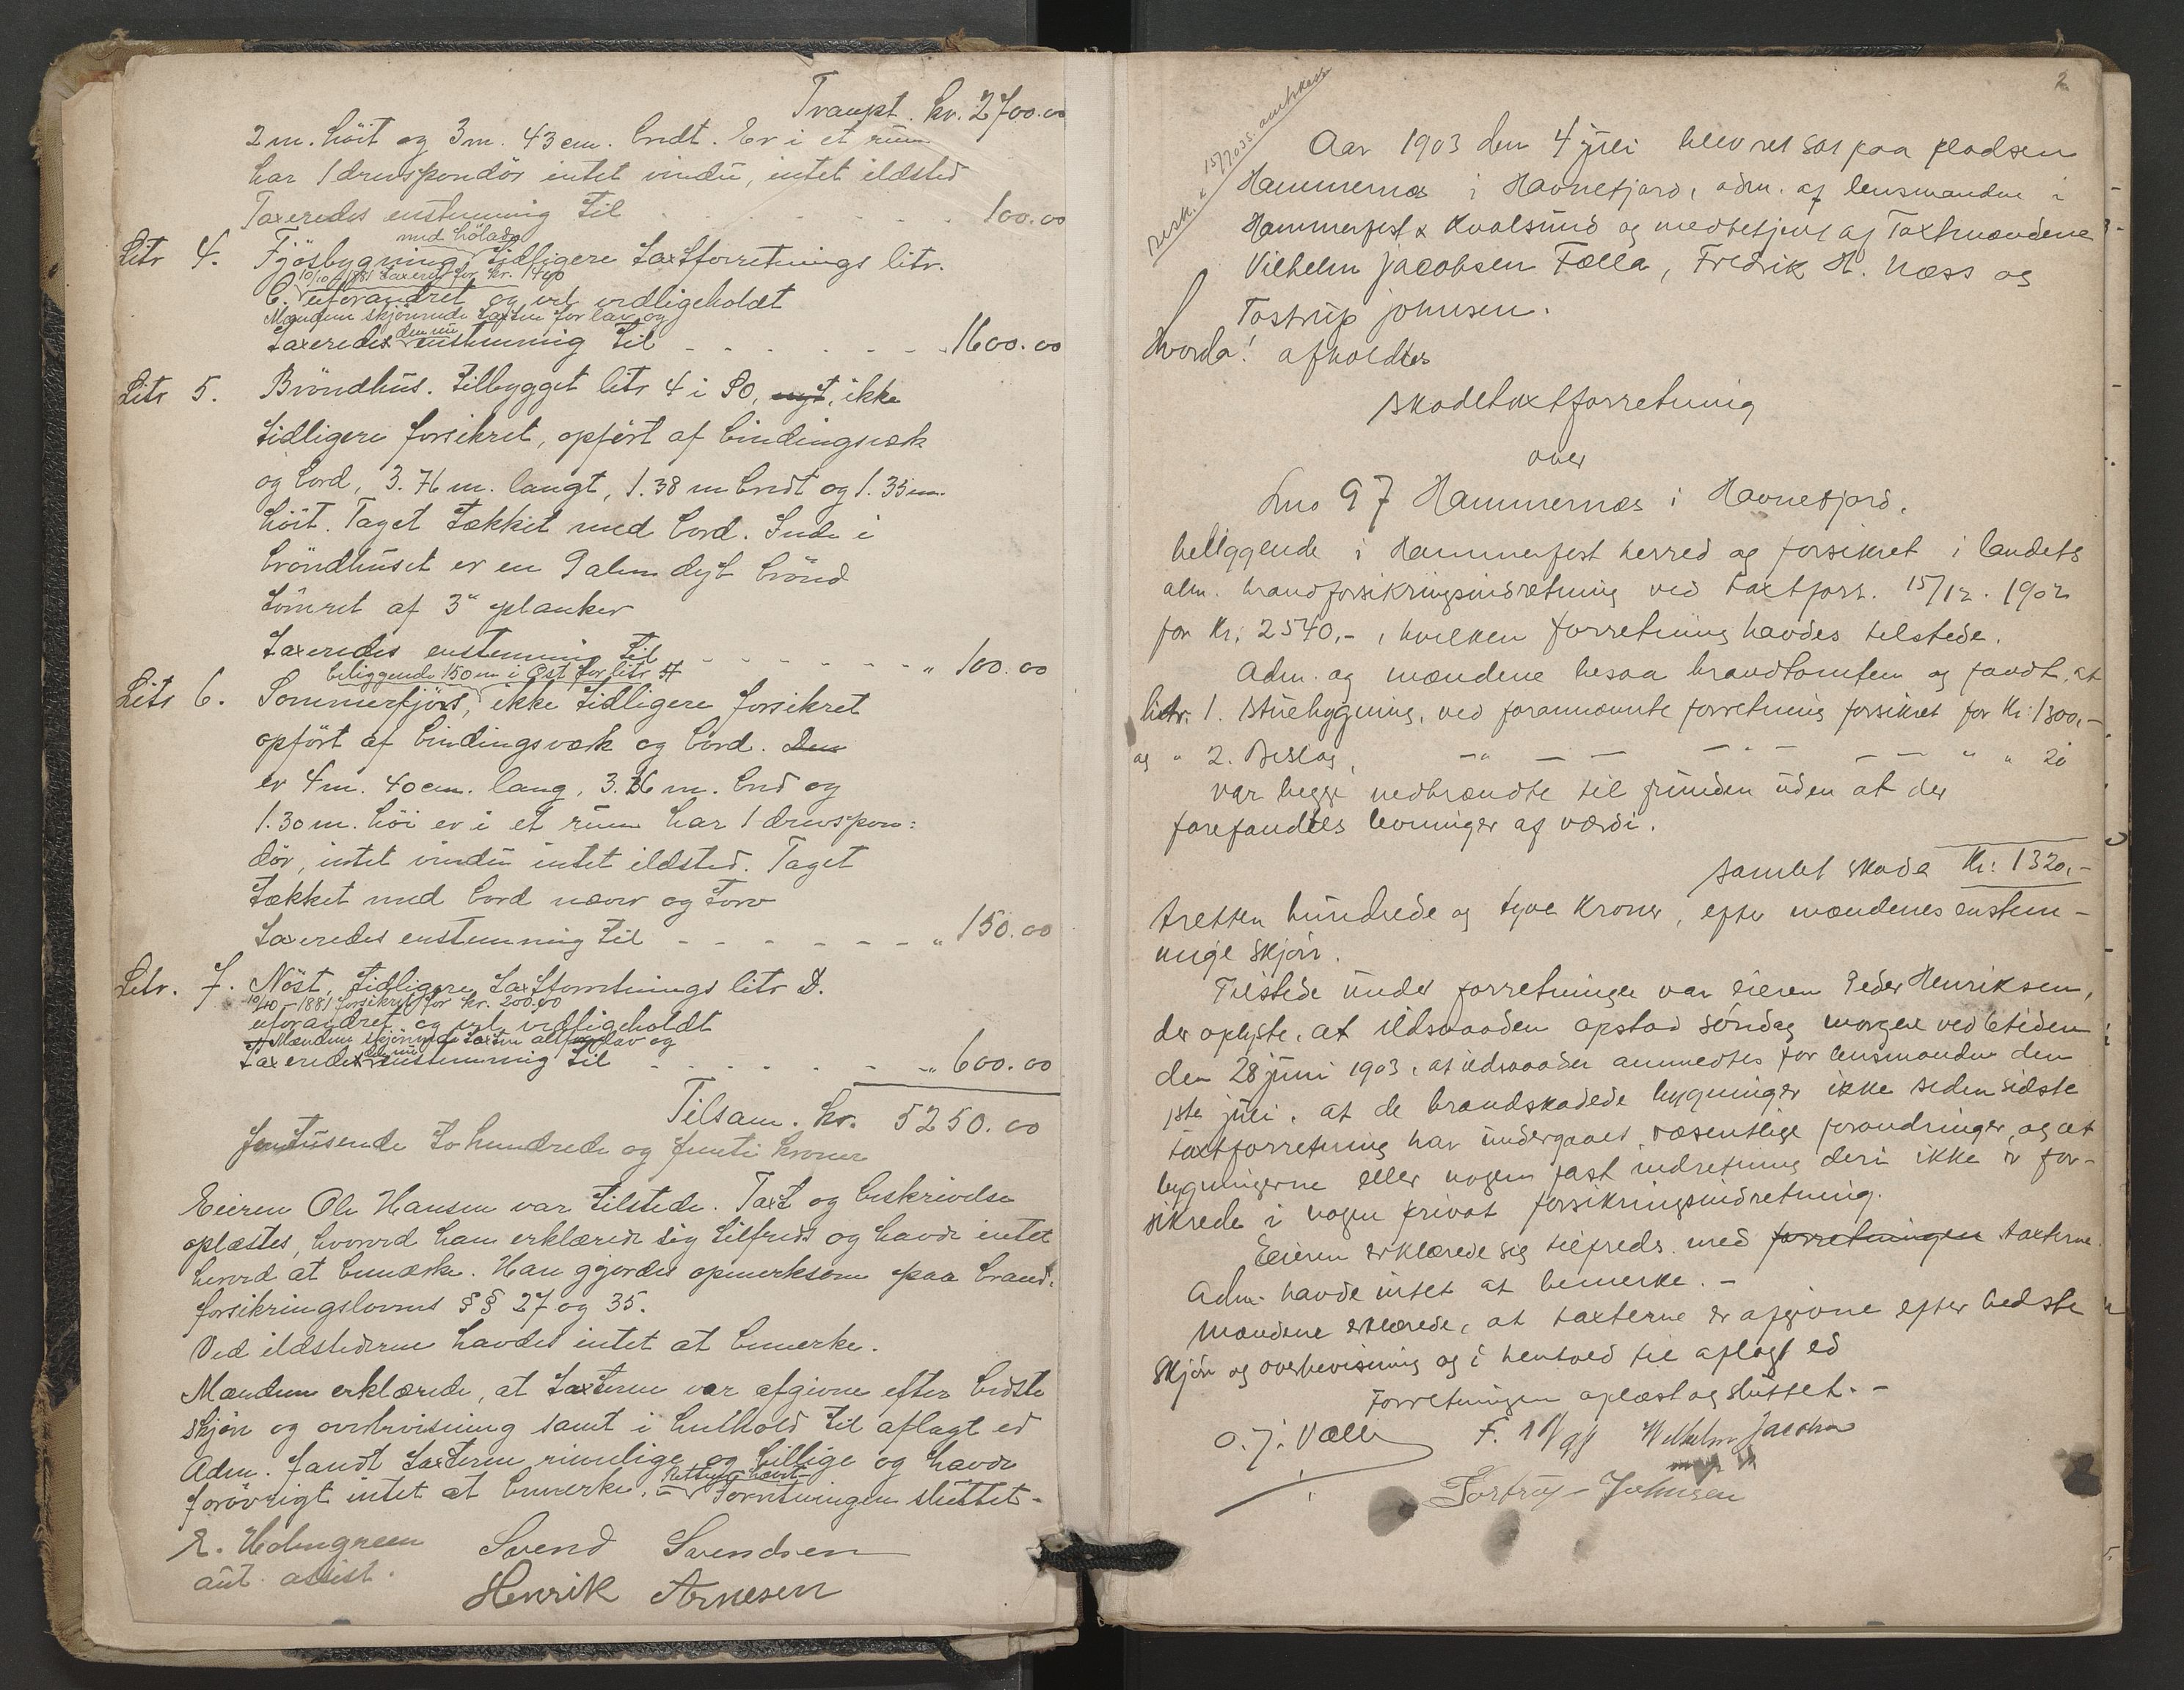 Transpt. kr. 2700.00
2 m. höit og 3 m. 43 cm. bredt. Er i et rum
har 1 drevspondör intet vindu, intet ildsted
Taxeredes enstemmig til - - - - - - 100.00
Litr 4. Fjösbygning med hölade, tidligere taxtforretnings litr.
C. 10/10-1881 taxeret for kr. 1400 uforandret og vel vedligeholdt
Mændene skjönnede taxten for lav og
taxeredes den nu enstemmig til - - - - - - 1600.00
Litr 5. Bröndhus. tilbygget litr 4 i SO, nyt, ikke
tidligere forsikret, opfört af bindingsværk
og bord, 3.76 m. langt, 1.38 m bredt og 1.35 m.
höit. Taget tækket med bord. Inde i
bröndhuset er en 9 alen dyb brönd
tömret af 3" planker
taxeredes enstemmig til - - - - - - " 100.00
Litr 6. Sommerfjös, beliggende 150 m i Öst for litr 4
ikke tidligere forsikret
opfört af bindingsværk og bord. Den
er 4 m. 40 cm. lang, 3.36 m. bred og
1.30 m. höi er i et rum har 1 drevspon:
dör, intet vindu intet ildsted. Taget
tækket med bord næver og torv
taxeredes enstemmig til - - - - - - " 150.00
Litr. 7. Nöst, tidligere taxtforretnings litr D.
10/10-1881 forsikret for kr. 200.00
uforandret og vel vedligeholdt
Mændene skjönnede taxten altfor lav og
taxeredes den nu enstemmig til - - - - - - " 600.00
Tilsam. kr. 5250.00
femtusende to hundrede og femti kroner
Eieren Ole Hansen var tilstede. Taxt og beskrivelse
oplæstes, hvorved han erklærede sig tilfreds og havde intet
herved at bemærke. Han gjordes opmerksom paa brand-
forsikringslovens §§ 27 og 35.
Ved ildstederne havdes intet at bemerke.
Mændene erklærede, at taxterne var afgivne efter bedste
skjön og overbevisning samt i henhold til aflagt ed
Adm. fandt taxterne rimelige og billige og havde
forövrigt intet at bemerke. - Rettelse hævet - Forretningen sluttet -
E. Holmgreen Svend Svendsen
aut. assist. Henrik Arnesen
2
besk. 15/7 03 amtskassen
Aar 1903 den 4 juli blev ret sat paa pladsen
Hammernæs i Havnefjord, adm. af lensmanden i
Hammerfest & Kvalsund og medbetjent af Taxtmændene
Vilhelm Jacobsen Fælla, Fredrik H. Næss og
Tostrup Johnsen.
Hvorda! afholdtes
skadetaxtforretning
over
Lno 97 Hammernæs i Havnefjord.
beliggende i Hammerfest herred og forsikret i landets
alm. brandforsikringsindretning ved taxtforr. 15/12. 1902
for kr. 2540,-, hvilken forretning havdes tilstede.
Adm. og mændene besaa brandtomten og fandt, at
litr. 1. Stuebygning, ved forannævnte forretning forsikret for kr. 1300,-
og " 2. Bislag, -"- - - -"- - - " " 20
var begge nedbrændte til grunden uden at der
forefandtes levninger af værdi.
samlet skade kr: 1320,-
tretten hundrede og tyve kroner, efter mændenes enstem-
mige skjön.
Tilstede under forretningen var eieren Peder Henriksen,
der oplyste, at ildsvaaden opstod söndag morgen ved 6tiden
den 28 juni 1903, at ildsvaaden anmeldtes for lensmanden den
1ste juli, at de brandskadede bygninger ikke siden sidste
taxtforretning har undergaaet væsentlige forandringer, og at
bygningerne eller nogen fast indretning deri ikke er for-
sikrede i nogen privat forsikringsindretning.
Eieren erklærede sig tilfreds med forretningen taxterne.
Adm. havde intet at bemerke. -
Mændene erklærede, at taxterne er afgivne efter bedste
skjön og overbevisning og i henhold til aflagt ed
Forretningen oplæst og sluttet. -
O. J. Valle F. Wilhelm Jacobsen
Tostrup Johnsen